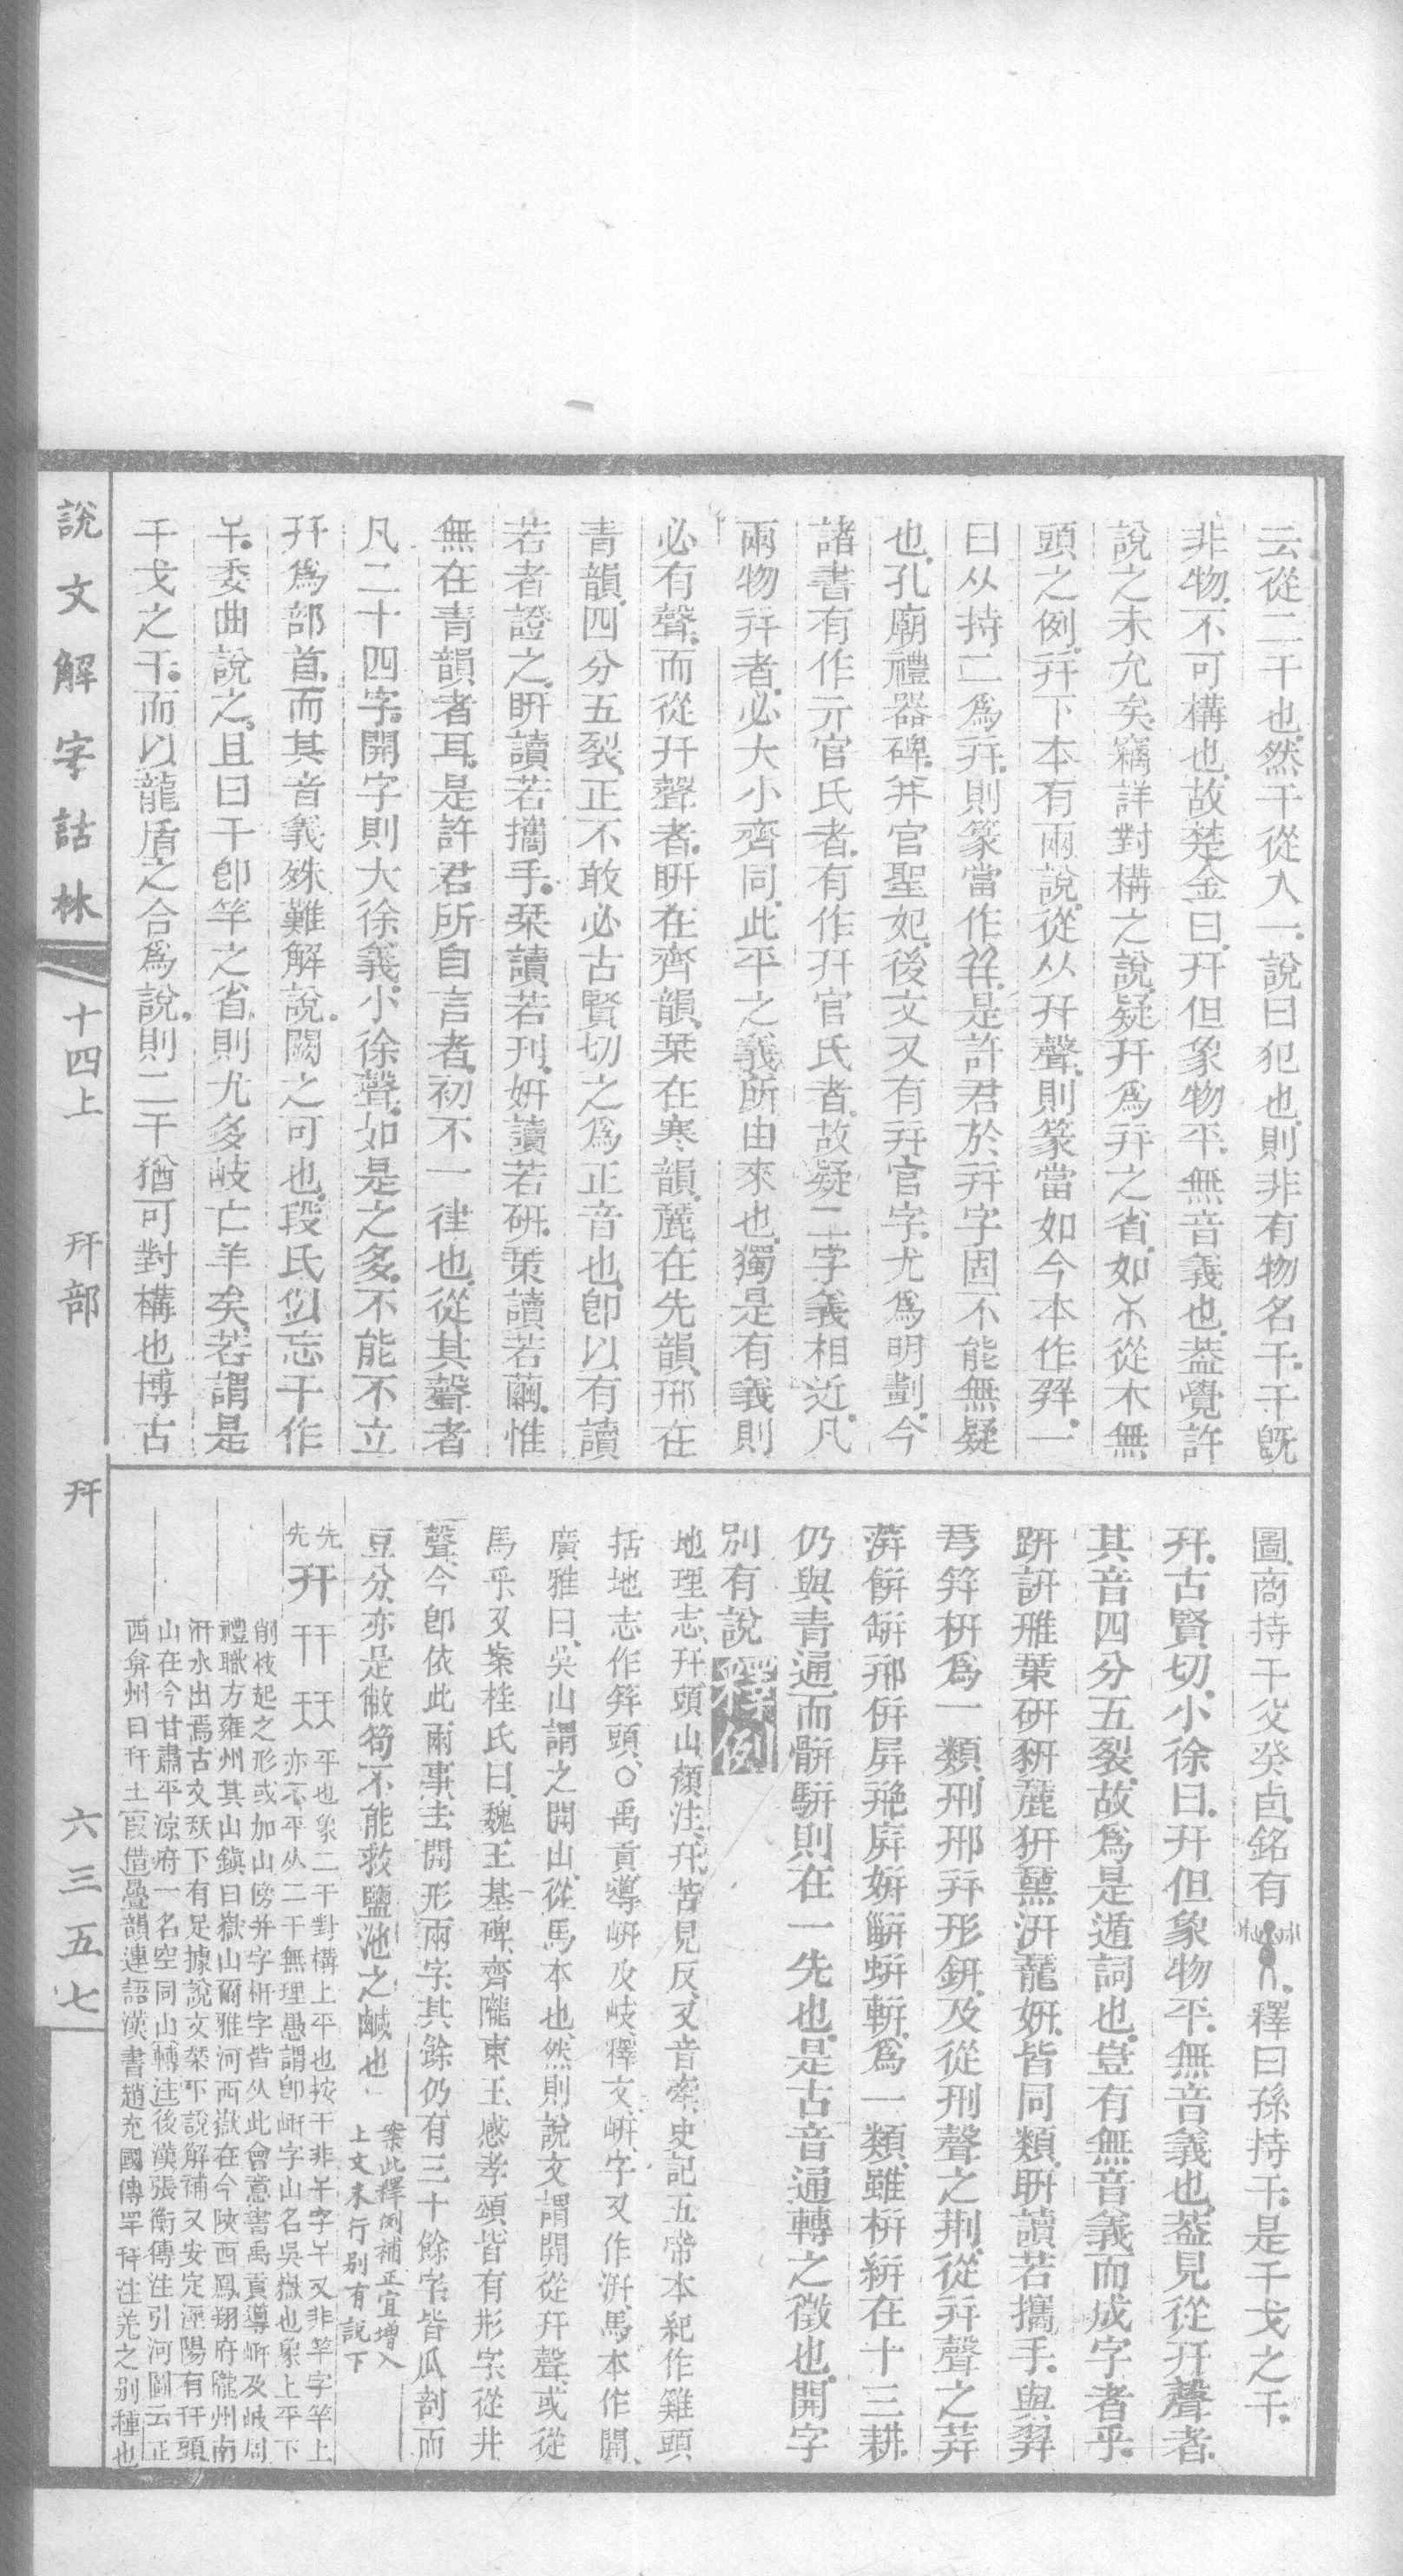 云從二干也然干從入一說曰犯也則非有物名干干旣
非物不可構也故楚金曰幵但象物平無音義也蓋覺許
說之未允矣竊詳對構之說疑幵爲幷之省如不從木無
頭之例幷下本有兩說從从幵聲則篆當如今本作一
曰从持二爲幷則篆當作是許君於幷字固不能無疑
也孔廟禮器碑幷官聖妃後文又有幷官字尤爲明劃今
諸書有作亓官氏者有作幵官氏者故疑二字義相近凡
兩物幷者必大小齊同此平之義所由來也獨是有義則
必有聲而從幵聲者盻在齊韻栞在寒韻麉在先韻邢在
靑韻四分五裂正不敢必古賢切之爲正音也卽以有讀
若者證之讀若攜手栞讀若刊妍讀若硏讀若繭惟
無在靑韻者耳是許君所自言者初不一律也從其聲者
凡二十四字開字則大徐義小徐聲如是之多不能不立
幵爲部首而其音義殊難解說闕之可也段氏似忘干作
委曲說之且曰干卽竿之省則尤多岐亡羊矣若謂是
干戈之干而以龍盾之合爲說則二干猶可對構也博古
圖商持干父癸卣銘有釋曰孫持干是干戈之干
幵古賢切小徐曰幵但象物平無音義也蓋見從幵聲者
其音四分五裂故爲是遁詞也豈有無音義而成字者乎
趼訮雃硏豜麉汧妍皆同類讀若攜手與羿
笄枅爲一類刑邢幷形鈃及從刑聲之荆從幷聲之
餠缾郱倂屛艵庰姘蛢輧爲一類雖栟絣在十三耕
仍與靑通而骿駢則在一先也是古音通轉之徵也開字
別有說 釋例
地理志幵頭山顏注幵苦見反又音牽史記五帝本紀作雞頭
括地志作笄頭〇禹貢導岍及岐釋文岍字又作汧馬本作開
廣雅曰吳山謂之開山從馬本也然則說文謂開從幵聲或從
馬乎又案桂氏曰魏王基碑齊隴東王感孝頌皆有形字從井
聲今卽依此兩事去開形兩字其餘仍有三十餘字皆瓜剖而
豆分亦是敝笱不能救鹽池之鹹也 案此釋例補正宜增入
上文末行別有說下
先先 幵 平也象二干對構上平也按干非字又非竿字竿上
亦不平从二干無理愚謂卽岍字山名吳嶽也象上平下
削枝起之形或加山傍幷字枅字皆从此會意書禹貢導岍及岐周
禮職方雍州其山鎭曰嶽山爾雅河西嶽在今陝西鳳翔府隴州南
汧水出焉古文下有足據說文栞下說解補又安定涇陽有幵頭
山在今甘肅平涼府一名空同山轉注後漢張衡傳注引河圖云正
西弇州曰幵土假借疊韻連語漢書趙充國傳罕幵注羌之別種也
說文解字詁林 十四上 幵部 幵 六三五七